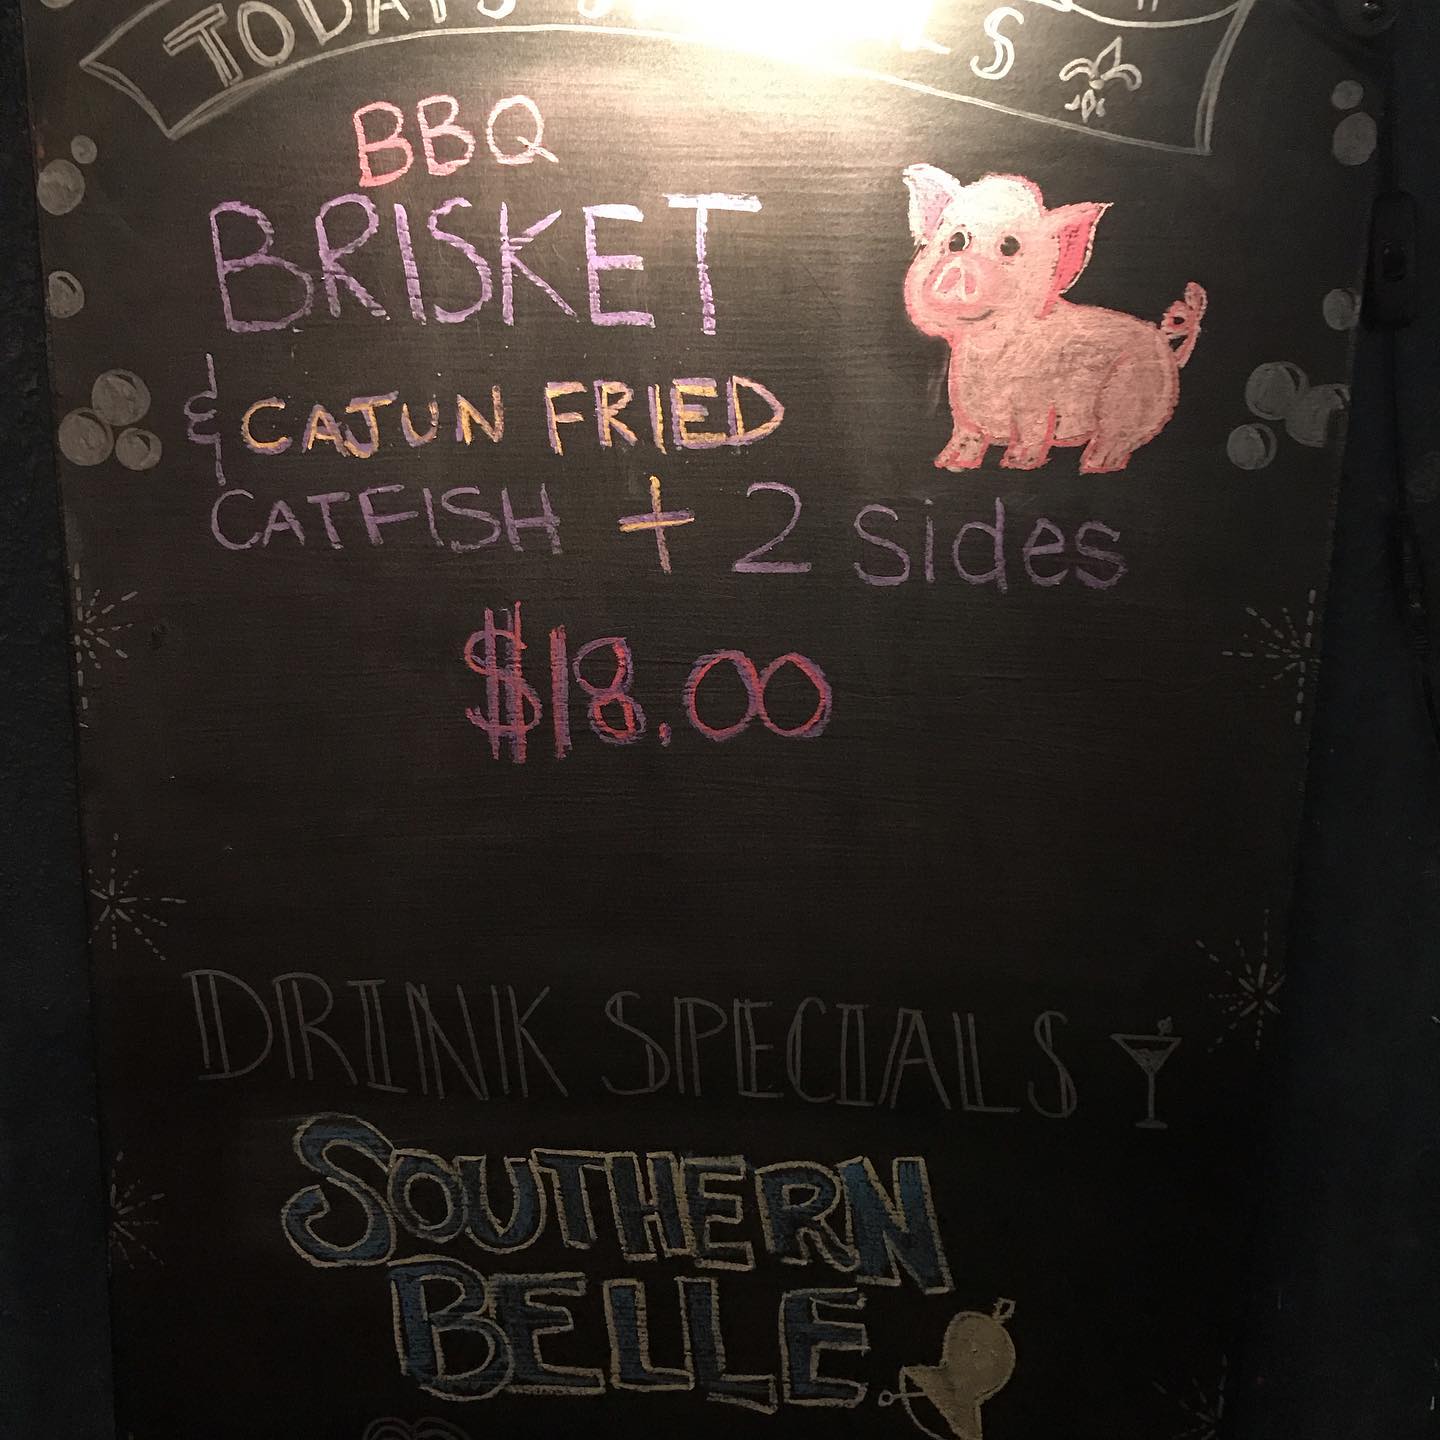 TODAY'S
BBQ
BRISKET
& CAJUN FRIED
CATFISH + 2 sides
$18.00
DRINK SPECIALS
SOUTHERN
BELLE